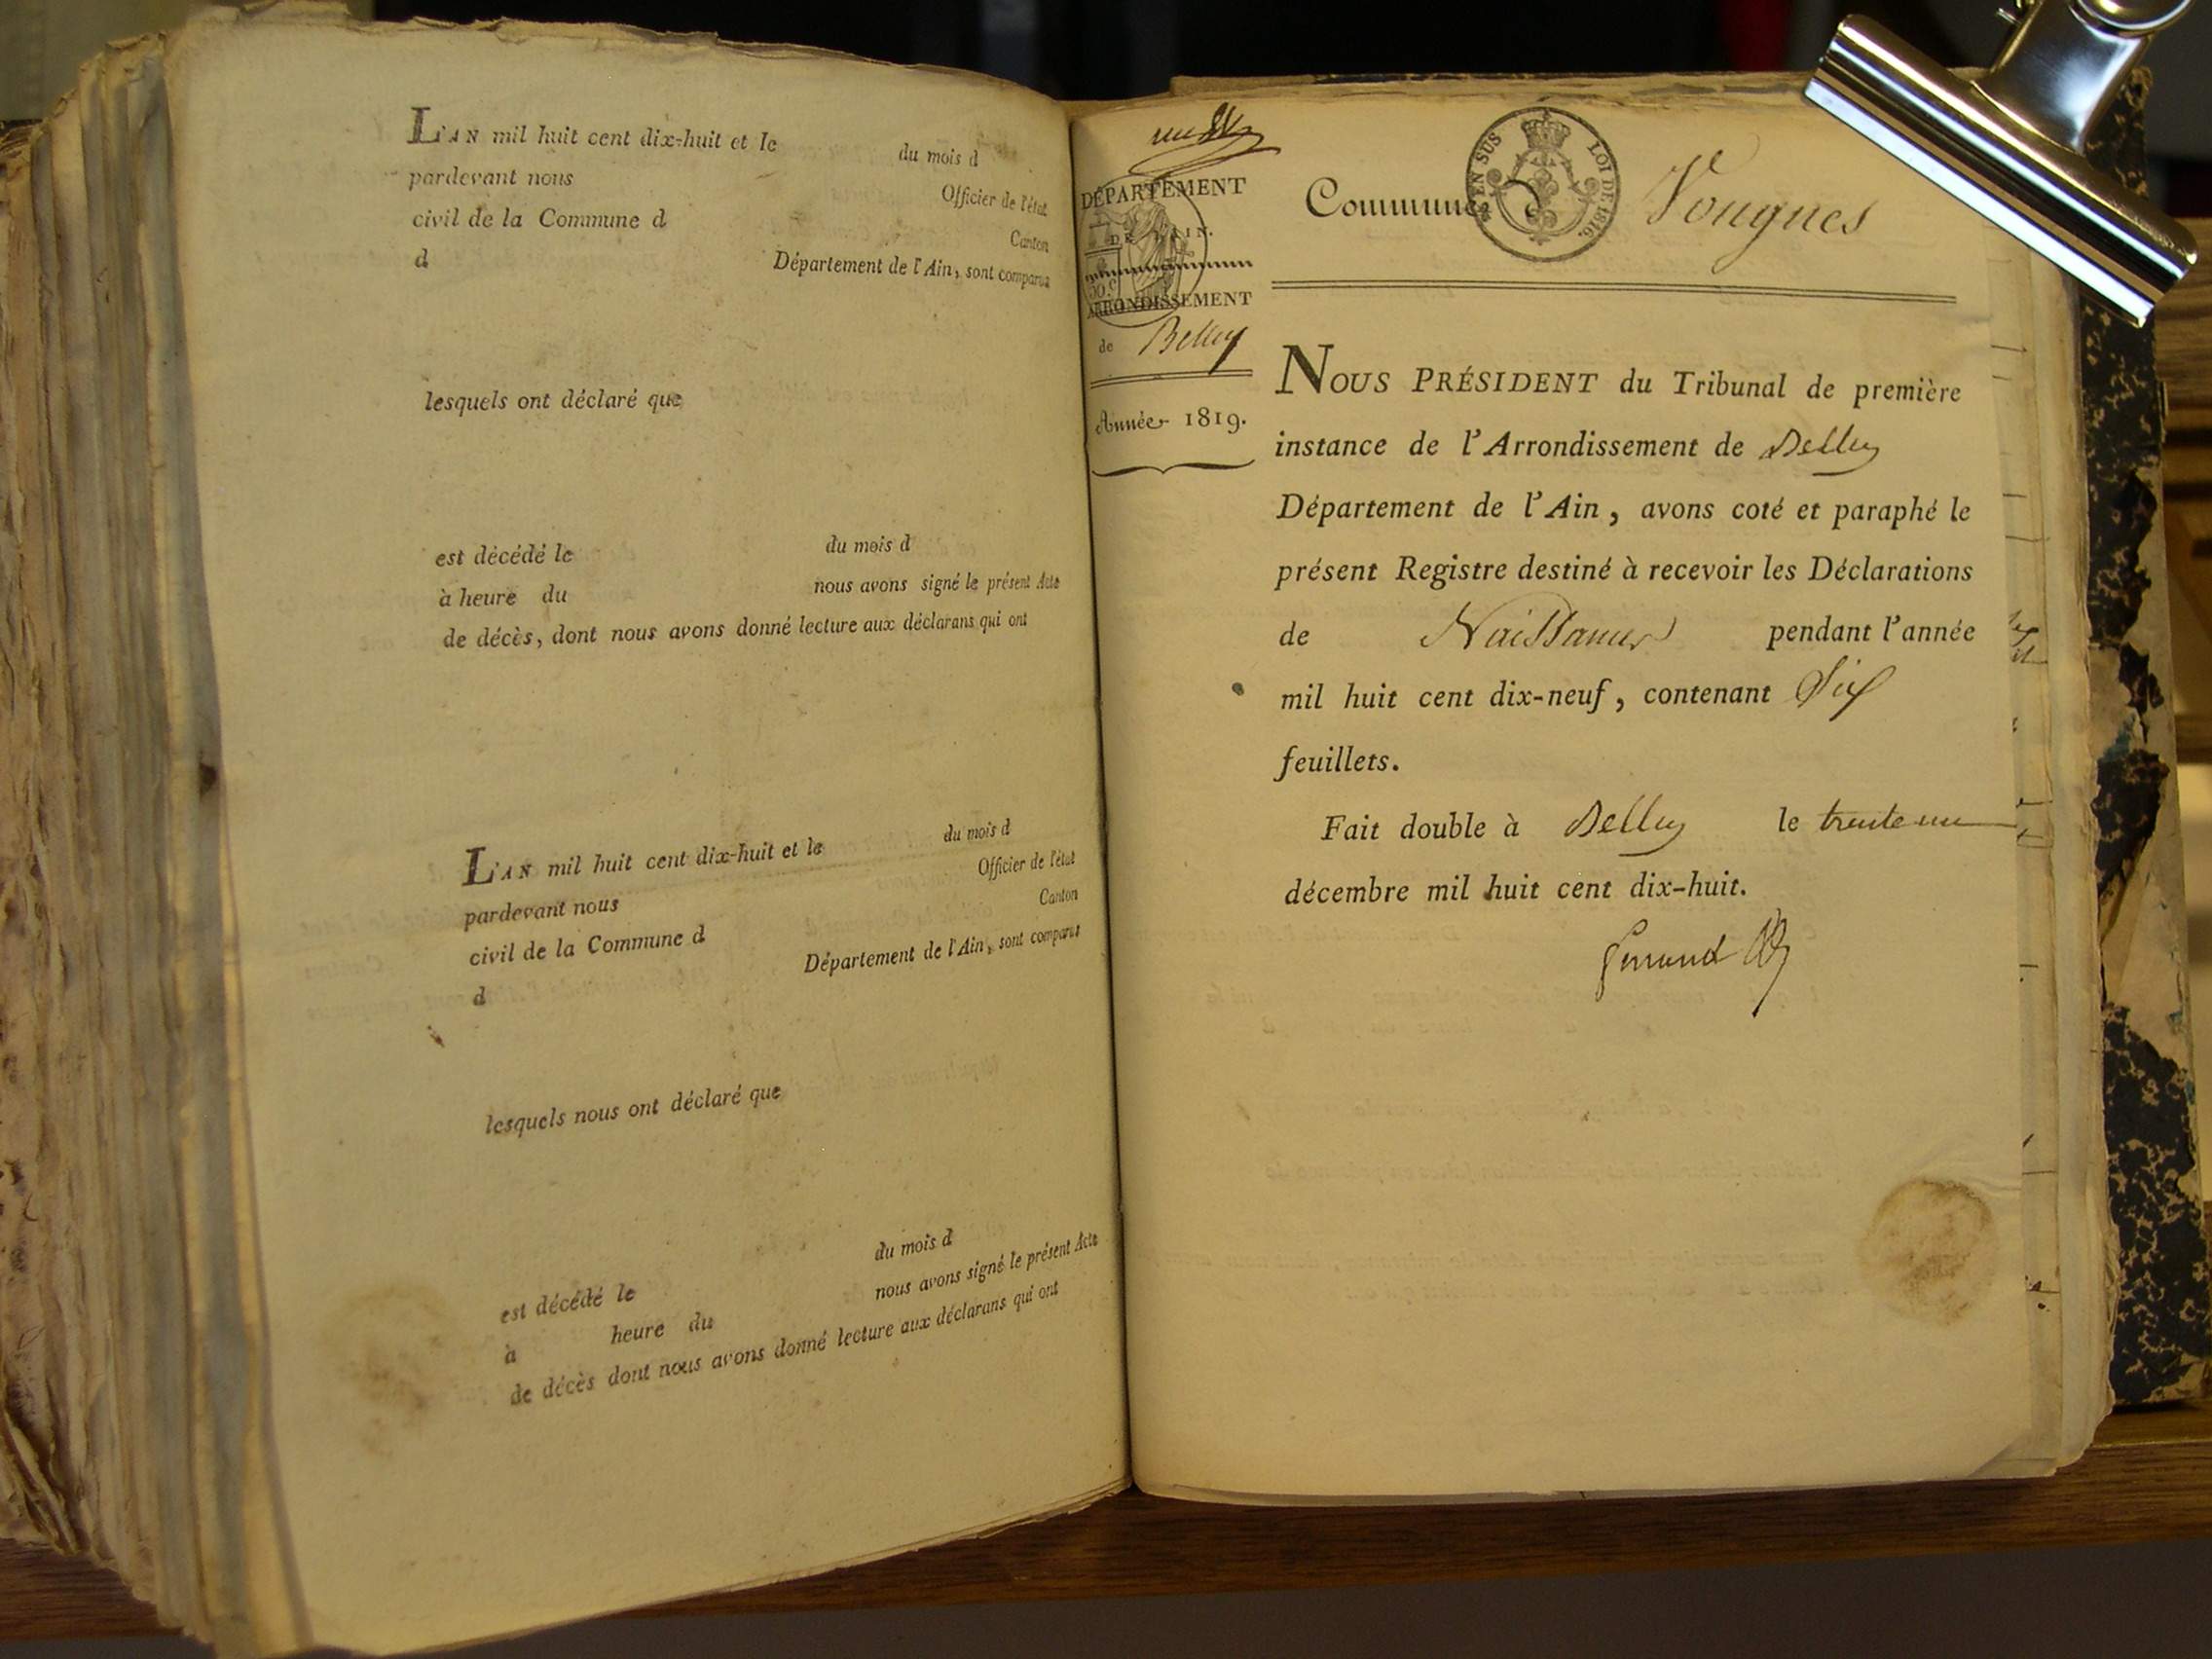 L'AN mil huit cent dix-huit et le du mois d
pardevant nous Officier de l'état
civil de la Commune d Canton
d Département de l'Ain, sont comparus
lesquels ont déclaré que
est décédé le du mois d
à heure du nous avons signé le présent Acte
de décès, dont nous avons donné lecture aux déclarans qui ont
L'AN mil huit cent dix-huit et le du mois d
pardevant nous Officier de l'état
civil de la Commune d Canton
d Département de l'Ain, sont comparus
lesquels nous ont déclaré que
est décédé le du mois d
à heure du nous avons signé le présent Acte
de décès dont nous avons donné lecture aux déclarans qui ont
DÉPARTEMENT
DE L'AIN.
50.c
ARRONDISSEMENT
de Belley
Année 1819.
EN SUS LOI DE 1816.
Commune de Vougnes
NOUS PRÉSIDENT du Tribunal de première
instance de l'Arrondissement de Belley
Département de l'Ain, avons coté et paraphé le
présent Registre destiné à recevoir les Déclarations
de Naissances pendant l'année
mil huit cent dix-neuf, contenant Six
feuillets.
Fait double à Belley le trente un
décembre mil huit cent dix-huit.